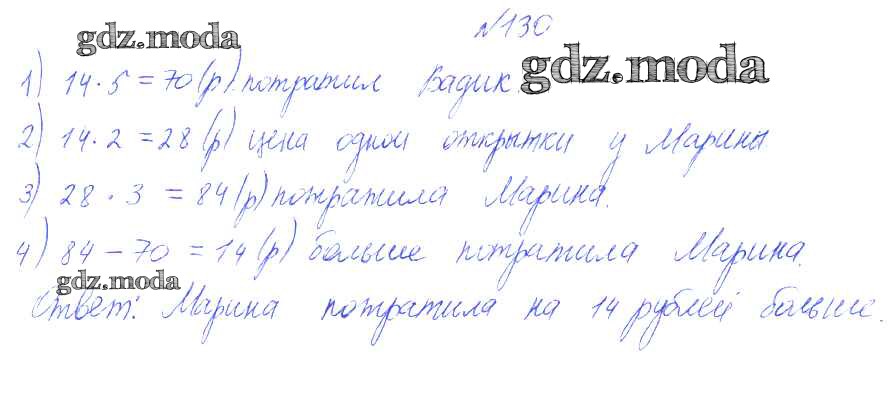 №130
gdz.moda
1) 14·5=70(р) потратил Вадик.
gdz.moda
2) 14·2=28(р) цена одной открытки у Марины
3) 28·3=84(р) потратила Марина.
4) 84-70=14(р) больше потратила Марина.
gdz.moda
Ответ: Марина потратила на 14 рублей больше.